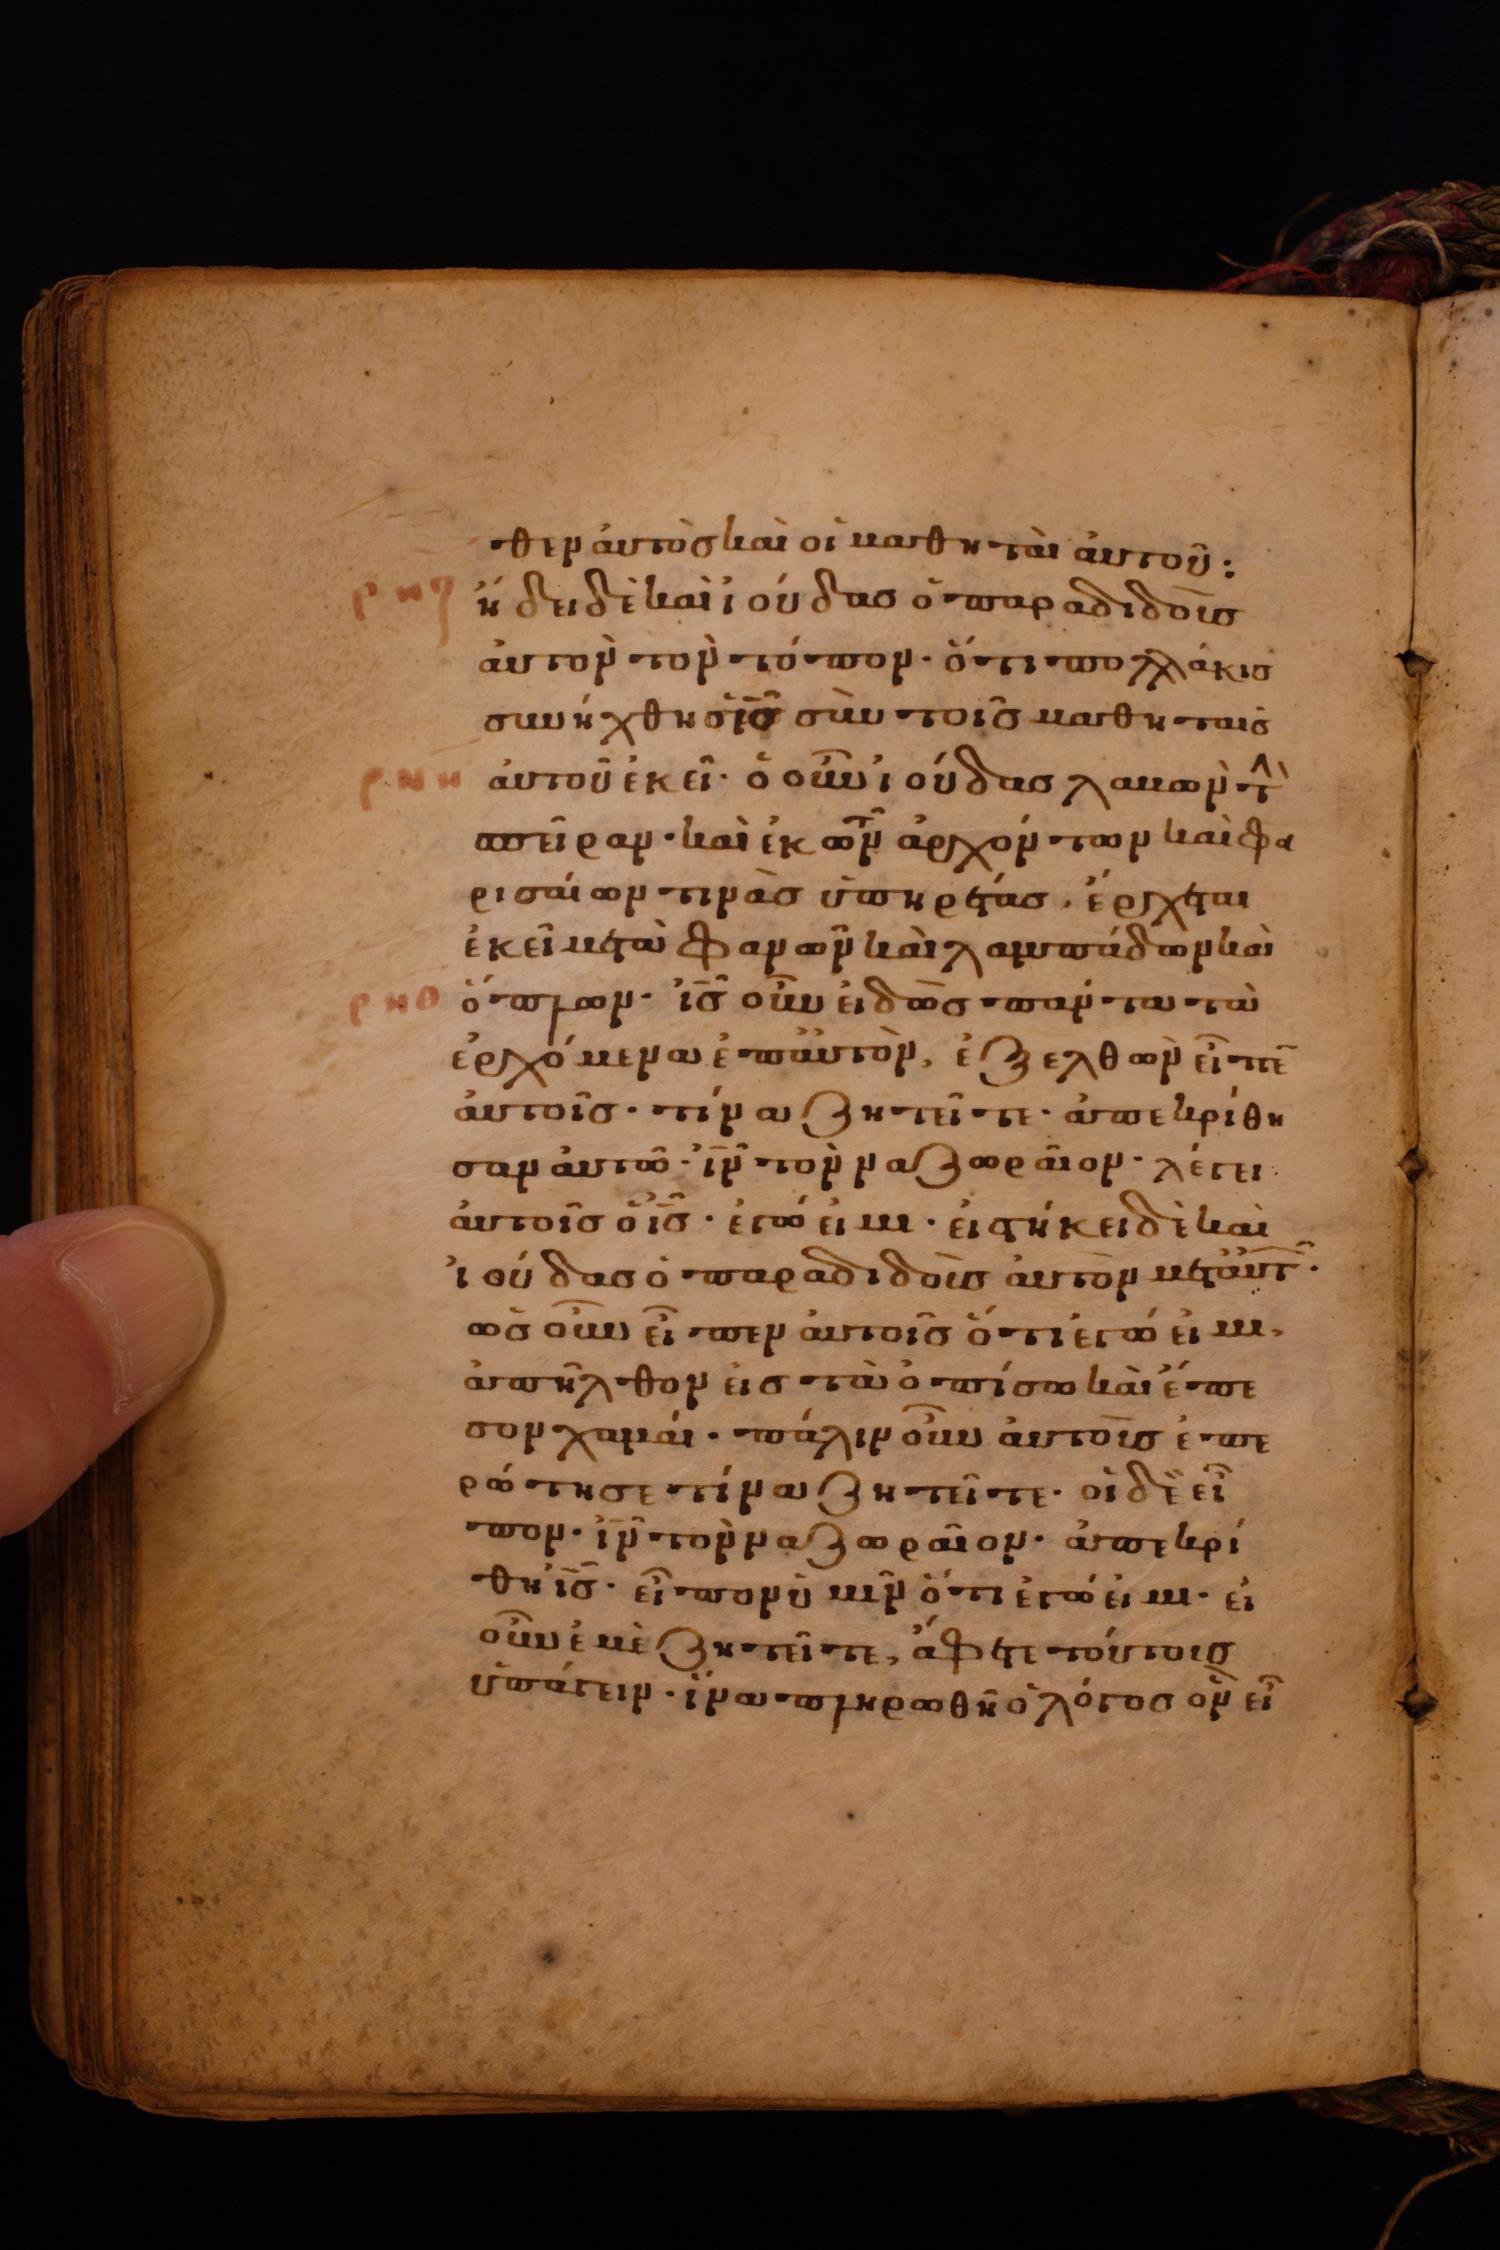 θεν ἀυτὸσ καὶ οἱ μαθηταὶ ἀυτοῦ:
ρνζ ἤδει δὲ καὶ ἰούδασ ὁ παραδιδοὺσ
ἀυτὸν τὸν τόπον· ὅτι πολλάκισ
συνήχθη ὁ ισ̅ σὺν τοῖσ μαθηταῖσ
ρνη ἀυτοῦ ἐκεῖ· ὁ οὖν ἰούδασ λαβὼν τὴ
σπεῖραν· καὶ ἐκ τῶν ἀρχόντων καὶ φα
ρισαίων τινὰσ ὑπηρέτασ, ἔρχεται
ἐκεῖ μετὰ φανῶν καὶ λαμπάδων καὶ
ρνθ ὅπλων· ισ̅ οὖν εἰδὼσ πάντα τὰ
ἐρχόμενα ἐπ ἀυτὸν, ἐξελθὼν εἶπε
ἀυτοῖσ· τίνα ζητεῖτε· ἀπεκρίθη
σαν ἀυτῶ· ιν̅ τὸν ναζωραῖον· λέγει
ἀυτοῖσ ὁ ισ̅· ἐγώ εἰμι· εἱστήκει δὲ καὶ
ἰούδασ ὁ παραδιδοὺσ ἀυτὸν μετ ἀυτ·
ὡσ οὖν εἶπεν ἀυτοῖσ ὅτι ἐγώ εἰμι,
ἀπῆλθον εἰσ τὰ ὀπίσω καὶ ἔπε
σον χαμάι· πάλιν οὖν ἀυτοὺσ ἐπε
ρώτησε τίνα ζητεῖτε· οἱ δὲ εἶ
πον· ιν̅ τὸν ναζωραῖον· ἀπεκρί
θη ισ̅· εἶπον ὑμῖν ὅτι ἐγώ εἰμι· εἰ
οὖν ἐμὲ ζητεῖτε, ἄφετε τούτουσ
ὑπάγειν· ἵνα πληρωθῆ ὁ λόγοσ ὃν εἶ